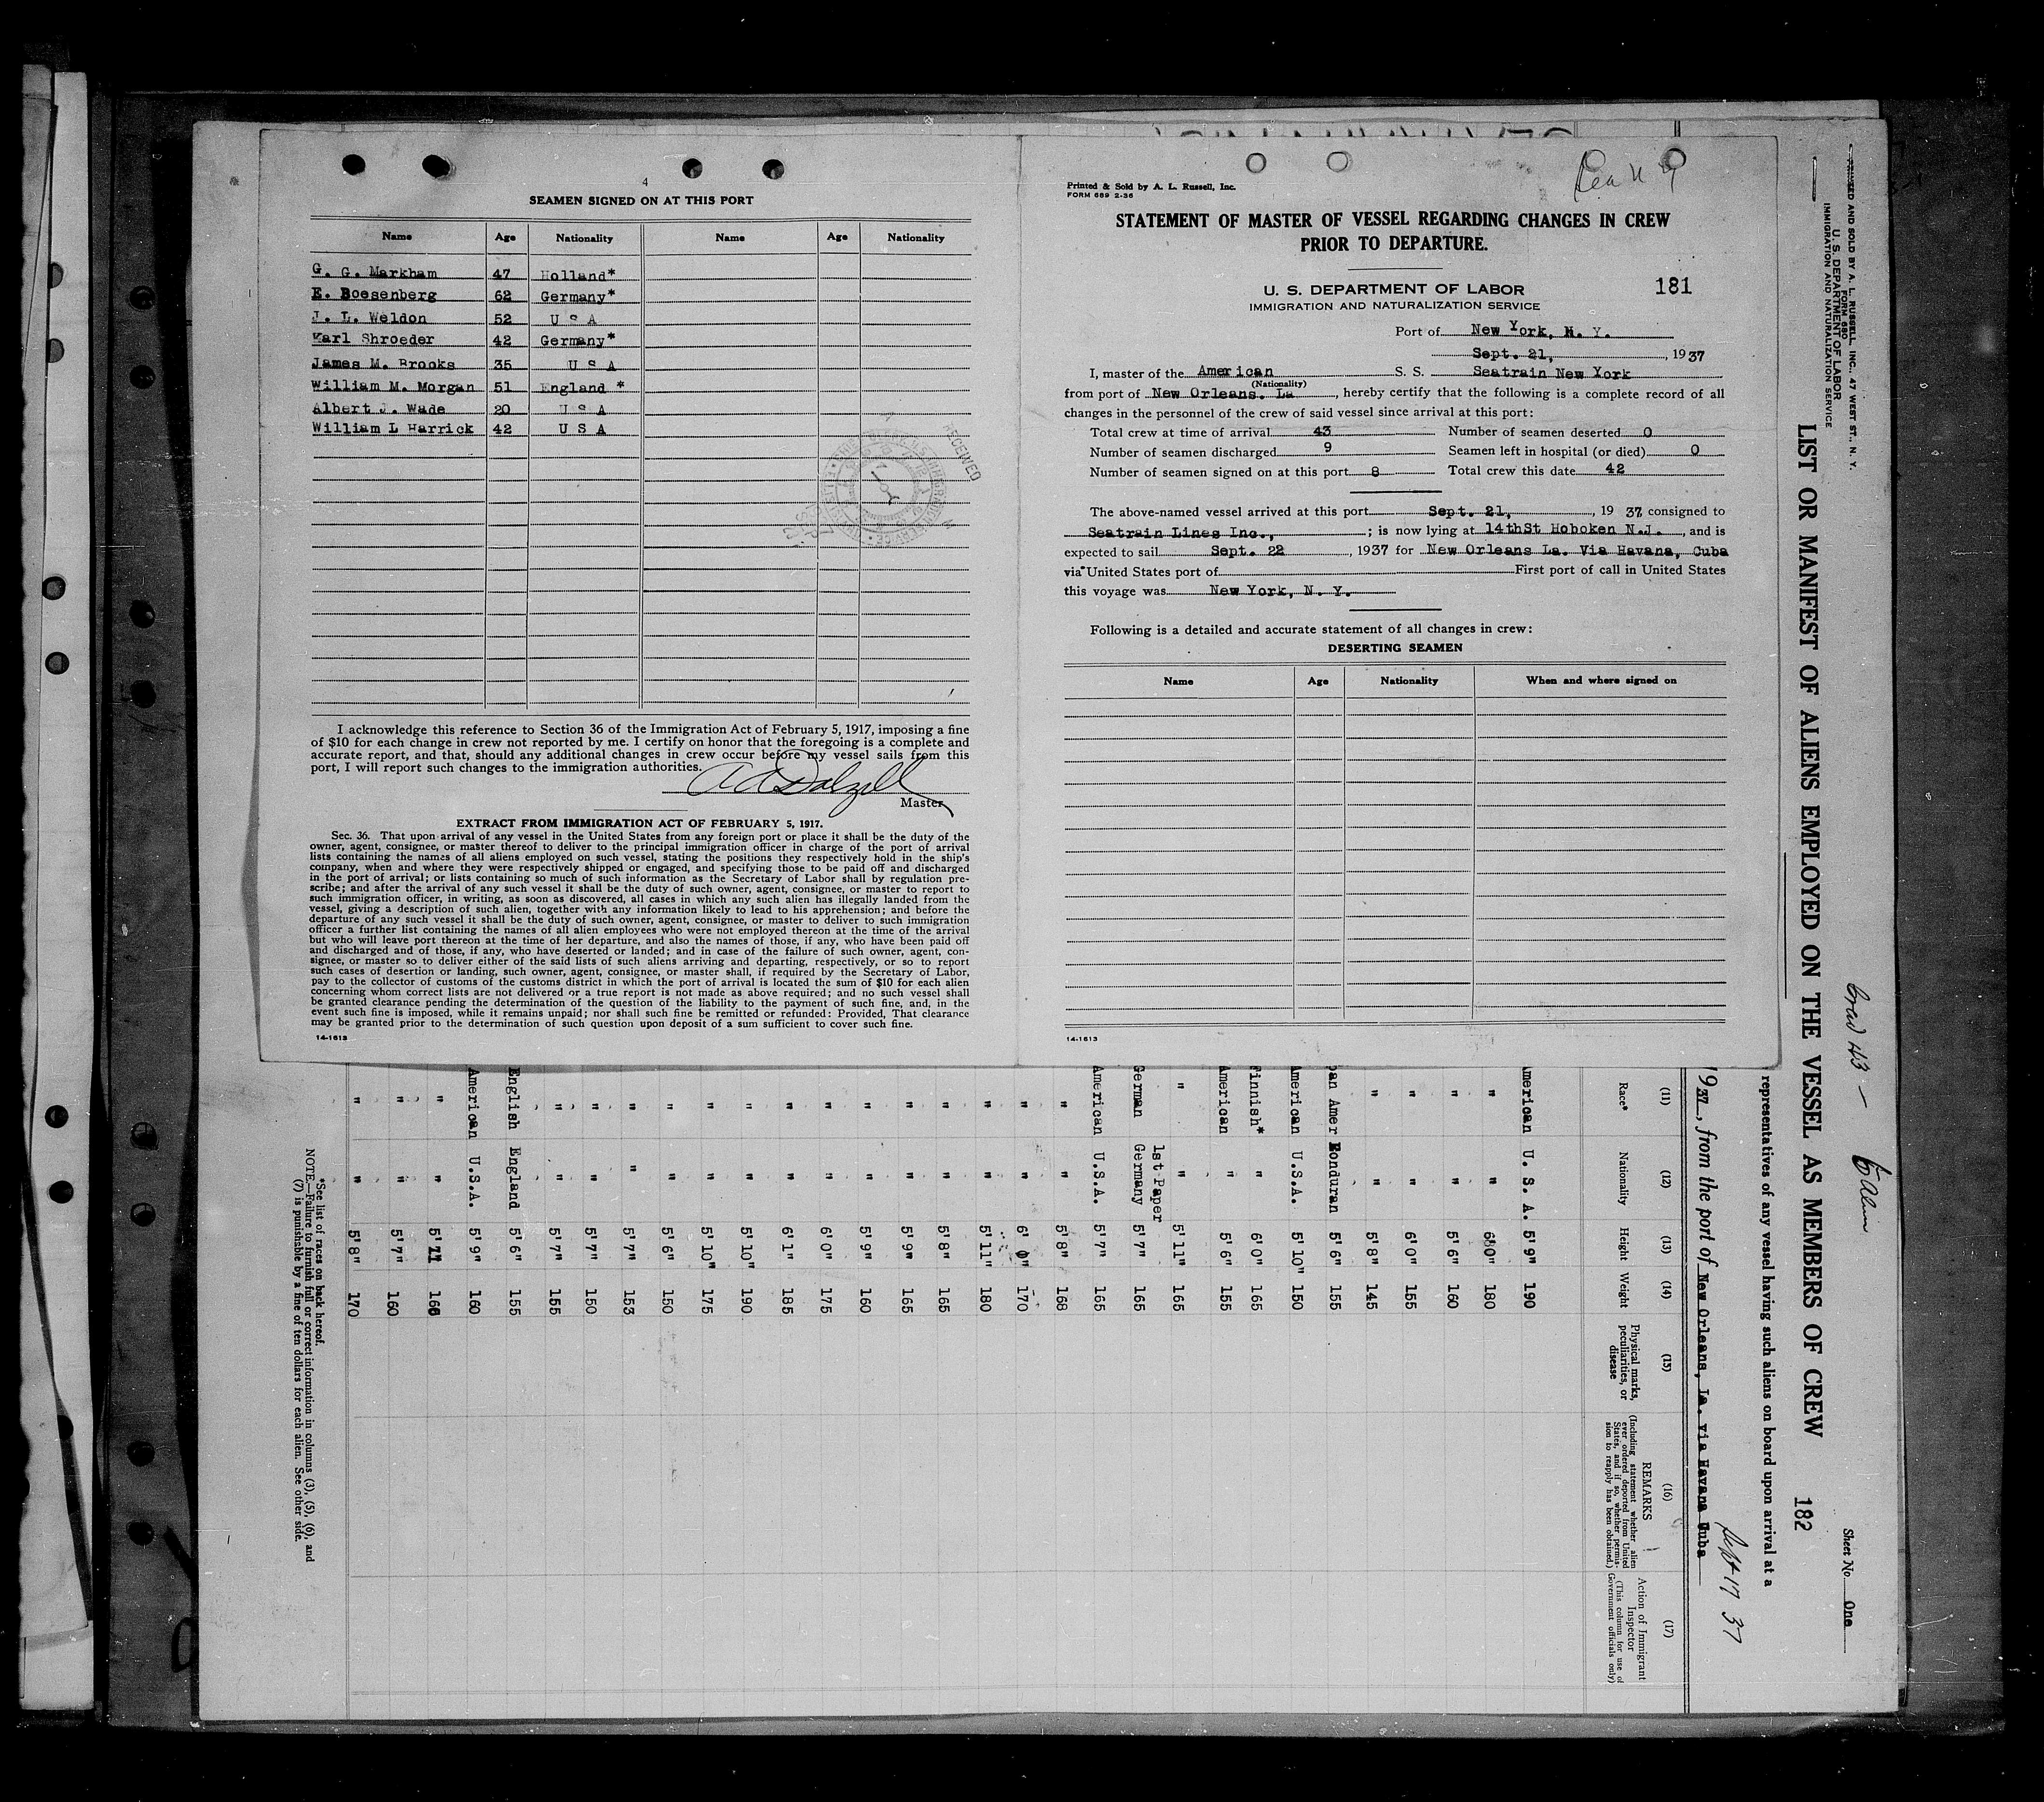 4
SEAMEN SIGNED ON AT THIS PORT
Name Age Nationality Name Age Nationality
G. G. Markham 47 Holland*
E. Boesenberg 62 Germany*
J. L. Weldon 52 U S A
Karl Shroeder 42 Germany*
James M. Brooks 35 U S A
William M. Morgan 51 England *
Albert J. Wade 20 U S A
William L Harrick 42 U S A
RECEIVED
I acknowledge this reference to Section 36 of the Immigration Act of February 5, 1917, imposing a fine
of $10 for each change in crew not reported by me. I certify on honor that the foregoing is a complete and
accurate report, and that, should any additional changes in crew occur before my vessel sails from this
port, I will report such changes to the immigration authorities.
Master
EXTRACT FROM IMMIGRATION ACT OF FEBRUARY 5, 1917.
Sec. 36. That upon arrival of any vessel in the United States from any foreign port or place it shall be the duty of the
owner, agent, consignee, or master thereof to deliver to the principal immigration officer in charge of the port of arrival
lists containing the names of all aliens employed on such vessel, stating the positions they respectively hold in the ship's
company, when and where they were respectively shipped or engaged, and specifying those to be paid off and discharged
in the port of arrival; or lists containing so much of such information as the Secretary of Labor shall by regulation pre-
scribe; and after the arrival of any such vessel it shall be the duty of such owner, agent, consignee, or master to report to
such immigration officer, in writing, as soon as discovered, all cases in which any such alien has illegally landed from the
vessel, giving a description of such alien, together with any information likely to lead to his apprehension; and before the
departure of any such vessel it shall be the duty of such owner, agent, consignee, or master to deliver to such immigration
officer a further list containing the names of all alien employees who were not employed thereon at the time of the arrival
but who will leave port thereon at the time of her departure, and also the names of those, if any, who have been paid off
and discharged and of those, if any, who have deserted or landed; and in case of the failure of such owner, agent, con-
signee, or master so to deliver either of the said lists of such aliens arriving and departing, respectively, or so to report
such cases of desertion or landing, such owner, agent, consignee, or master shall, if required by the Secretary of Labor,
pay to the collector of customs of the customs district in which the port of arrival is located the sum of $10 for each alien
concerning whom correct lists are not delivered or a true report is not made as above required; and no such vessel shall
be granted clearance pending the determination of the question of the liability to the payment of such fine, and, in the
event such fine is imposed, while it remains unpaid; nor shall such fine be remitted or refunded: Provided, That clearance
may be granted prior to the determination of such question upon deposit of a sum sufficient to cover such fine.
14-1613
Printed & Sold by A. L. Russell, Inc.
FORM 689 2-36
STATEMENT OF MASTER OF VESSEL REGARDING CHANGES IN CREW
PRIOR TO DEPARTURE.
U. S. DEPARTMENT OF LABOR 181
IMMIGRATION AND NATURALIZATION SERVICE
Port of New York, N. Y.
Sept. 21, , 1937
I, master of the American S. S. Seatrain New York
(Nationality)
from port of New Orleans. La , hereby certify that the following is a complete record of all
changes in the personnel of the crew of said vessel since arrival at this port:
Total crew at time of arrival 43 Number of seamen deserted 0
Number of seamen discharged 9 Seamen left in hospital (or died) 0
Number of seamen signed on at this port 8 Total crew this date 42
The above-named vessel arrived at this port Sept. 21, , 1937 consigned to
Seatrain Lines Inc., ; is now lying at 14thSt Hoboken N.J. , and is
expected to sail Sept. 22 , 1937 for New Orleans La. Via Havana, Cuba
via United States port of First port of call in United States
this voyage was New York, N. Y.
Following is a detailed and accurate statement of all changes in crew:
DESERTING SEAMEN
Name Age Nationality When and where signed on
14-1613
PRINTED AND SOLD BY A. L. RUSSELL, INC., 47 WEST ST., N. Y.
FORM 680
U. S. DEPARTMENT OF LABOR
IMMIGRATION AND NATURALIZATION SERVICE
Sheet No. One
LIST OR MANIFEST OF ALIENS EMPLOYED ON THE VESSEL AS MEMBERS OF CREW 182
representatives of any vessel having such aliens on board upon arrival at a
Sept 17 37
1937, from the port of New Orleans, La. via Havana Cuba
(11) (12) (13) (14) (15) (16) (17)
Race* Nationality Height Weight Physical marks, peculiarities, or disease REMARKS (Including statement whether alien ever ordered deported from United States, and if so, whether permission to reapply has been obtained.) Action of Immigrant Inspector (This column for use of Government officials only)
American U. S. A. 5' 9" 190
" " 180
" " 5' 6" 160
" " 6'0" 155
" " 5'8" 145
pan Amer Honduran 5' 6" 155
American U.S.A. 5' 10" 150
Finnish* " 6'0" 165
American " 5' 6" 155
" " 5' 11" 165
1st Paper
German Germany 5' 7" 165
American U.S.A. 5' 7" 165
" " 5'8" 168
" " 6' 0" 170
" " 5'11" 180
" " 5'8" 165
" " 5'9" 165
" " 5'9" 160
" " 6'0" 175
" " 6'1" 185
" " 5'10" 190
" " 5'10" 175
" " 5'6" 150
" " 5'7" 153
" " 5'7" 150
" " 5'7" 155
English England 5' 6" 155
American U.S.A. 5' 9" 160
" "
" " 5'7" 160
" " 5'8" 170
*See list of races on back hereof.
NOTE.—Failure to furnish full or correct information in columns (3), (5), (6), and
(7) is punishable by a fine of ten dollars for each alien. See other side.